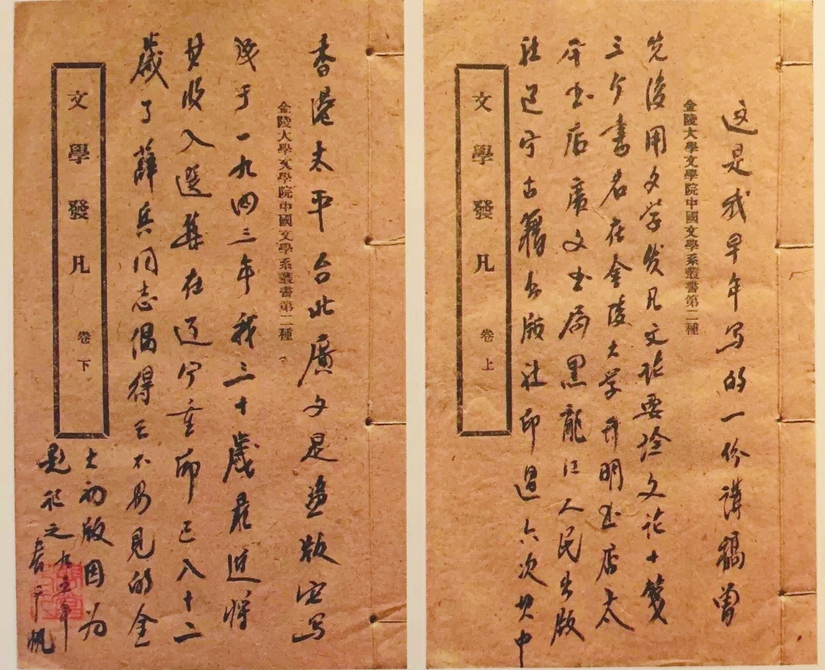 这是我早年写的一份講稿曾
金陵大學文學院中國文學系叢書第二種
先後用文学发凡文论要诠文论十笺
三个書名在金陵大学开明书店太
平书店廣文书局黑龍江人民出版
社辽宁古籍出版社印過六次其中
文學發凡 卷上
香港太平台北廣文是盗版它写
金陵大學文學院中國文學系叢書第二種
成于一九四三年我三十歲最近將
其收入選集在辽宁重印已八十二
歲了薛兵同志偶得已不易見的金
文學發凡 卷下
大初版因为
題記之九五年
春千帆